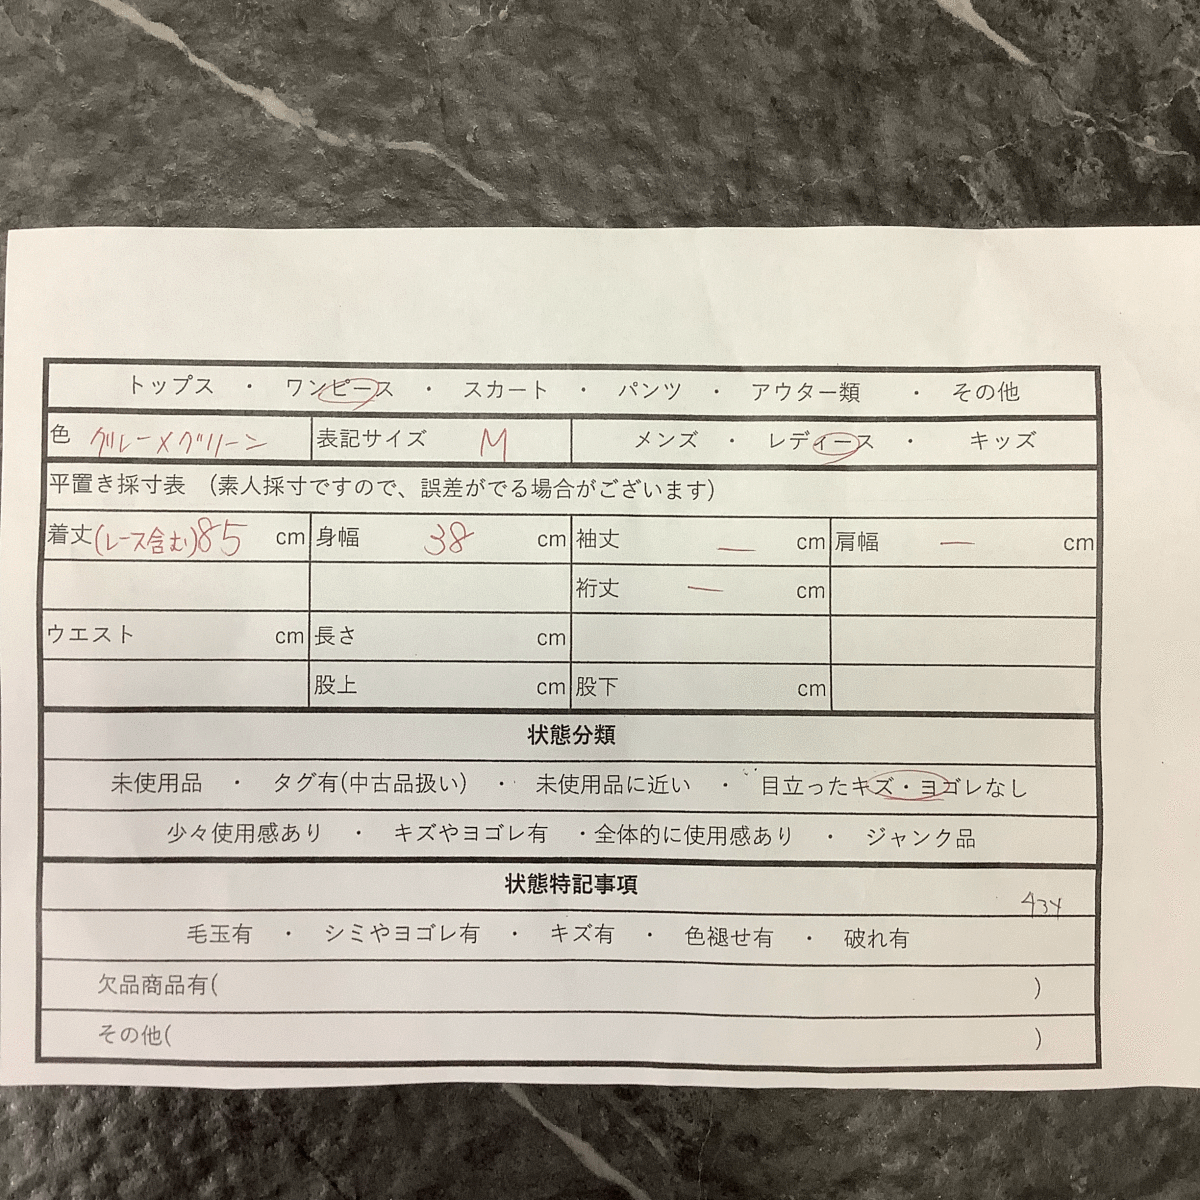 トップス ・ ワンピース ・ スカート ・ パンツ ・ アウター類 ・ その他
色 グレー×グリーン 表記サイズ M メンズ ・ レディース ・ キッズ
平置き採寸表 (素人採寸ですので、誤差がでる場合がございます)
着丈(レース含む)85 cm 身幅 38 cm 袖丈 ― cm 肩幅 ― cm
裄丈 ― cm
ウエスト cm 長さ cm
股上 cm 股下 cm
状態分類
未使用品 ・ タグ有(中古品扱い) ・ 未使用品に近い ・ 目立ったキズ・ヨゴレなし
少々使用感あり ・ キズやヨゴレ有 ・全体的に使用感あり ・ ジャンク品
状態特記事項
毛玉有 ・ シミやヨゴレ有 ・ キズ有 ・ 色褪せ有 ・ 破れ有
欠品商品有( )
その他( )